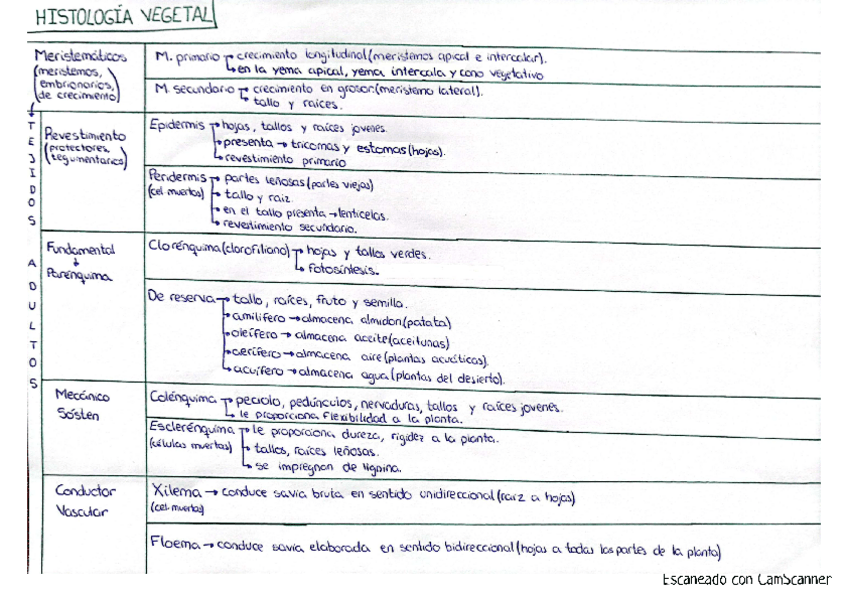 HISTOLOGÍA VEGETAL
Meristemáticos
(meristemos,
embrionarios,
de crecimiento)
M. primario → crecimiento longitudinal (meristemos apical e intercalar).
→ en la yema apical, yema intercala y cono vegetativo
M. secundario → crecimiento en grosor (meristemo lateral).
→ tallo y raíces.
TEJIDOS ADULTOS
Revestimiento
(protectores,
tegumentarios)
Epidermis → hojas, tallos y raíces jovenes.
→ presenta → tricomas y estomas (hojas).
→ revestimiento primario
Peridermis → partes leñosas (partes viejas)
(cel muertas) → tallo y raiz.
→ en el tallo presenta → lenticelas.
→ revestimiento secundario.
Fundamental
↓
Parénquima
Clorénquima (clorofiliano) → hojas y tallos verdes.
→ fotosíntesis.
De reserva → tallo, raíces, fruto y semilla.
→ amilifero → almacena almidon (patata)
→ oleífero → almacena aceite (aceitunas)
→ aerífero → almacena aire (plantas acuáticas).
→ acuífero → almacena agua (plantas del desierto).
Mecánico
Sósten
Colénquima → peciolo, pedúnculos, nervaduras, tallos y raíces jovenes.
→ le proporciona flexibilidad a la planta.
Esclerénquima → le proporciona dureza, rigidez a la planta.
(células muertas) → tallos, raíces leñosas.
→ se impregnan de lignina.
Conductor
Vascular
Xilema → conduce savia bruta en sentido unidireccional (raiz a hojas)
(cel. muertas)
Floema → conduce savia elaborada en sentido bidireccional (hojas a todas las partes de la planta)
Escaneado con CamScanner